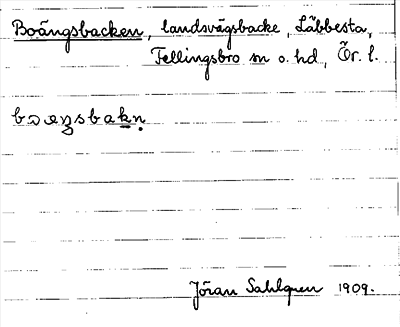 Boängsbacken, landsvägsbacke, Läbbesta,
Fellingsbro sn o. hd, Ör. l.
Jöran Sahlgren 1909.